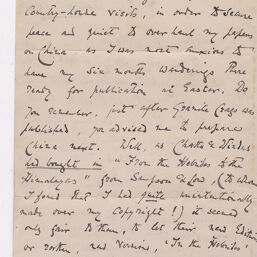 Country-house visits, in order to secure
peace and quiet to overhaul my papers
on China as I was most anxious to
have my six months wanderings there
ready for publication at Easter. Do
you remember, just after Granite Crags was
published, you advised me to prepare
China next. Well, as Chatto & Windus
had bought in "From the Hebrides to the
Himalayas" from Sampson & Low, (to whom
I found that I had quite unintentionally
made over my Copyright!) it seemed
only fair to them, to let their new Edition
or rather, new Version, 'In the Hebrides'